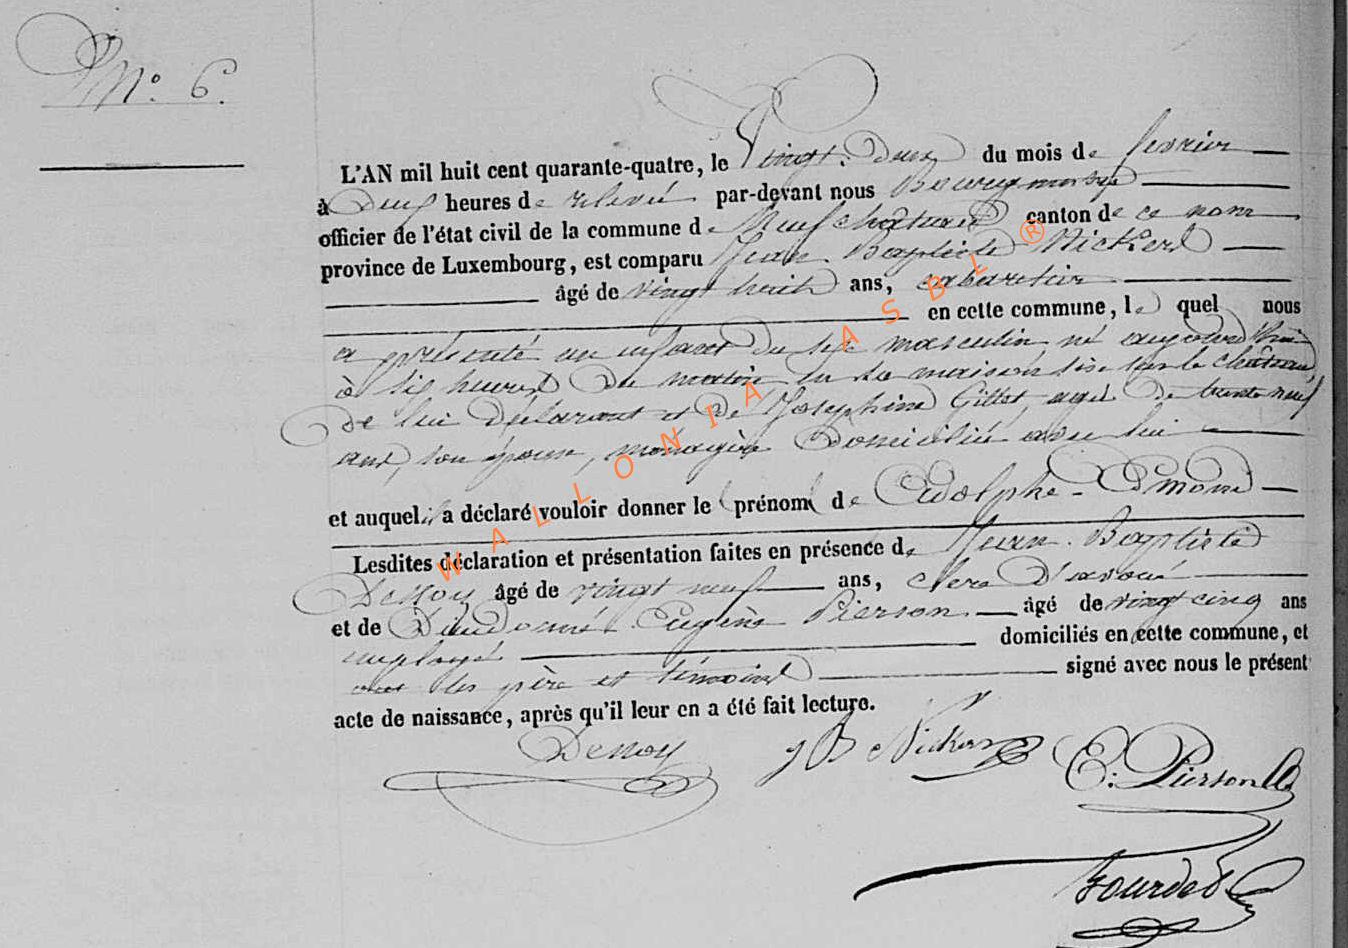 N° 6.
L'AN mil huit cent quarante-quatre, le Vingt-Deux du mois de fevrier
à Deux heures de relevée par-devant nous Bourgmestre
officier de l'état civil de la commune de Neufchateau canton de ce nom
province de Luxembourg, est comparu Jean-Baptiste Nickers
âgé de vingt huit ans, cabaretier
en cette commune, le quel nous
a présenté un enfant du sexe masculin né aujourd'hui
à six heures du matin en sa maison sise sur le château,
De lui Déclarant et De Josephine Gillet, agée De trente neuf
ans, son épouse, ménagère Domiciliée avec lui
et auquel il a déclaré vouloir donner le prénom de Adolphe-Edmond
Lesdites déclaration et présentation faites en présence de Jean-Baptiste
Denoy âgé de vingt neuf ans, clerc D'avoué
et de Dieudonné Eugène Pierson âgé de vingt cinq ans
employé domiciliés en cette commune, et
ont les père et témoins signé avec nous le présent
acte de naissance, après qu'il leur en a été fait lecture.
Denoy JB Nickers E. Pierson
WALLONIA ASBL ®